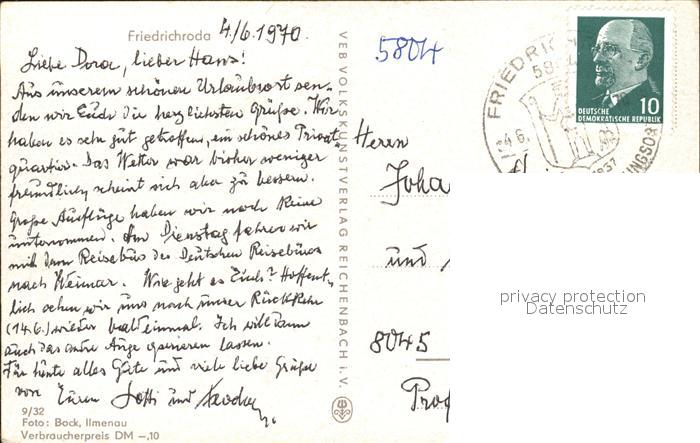 Friedrichroda 4./6. 1970.
Liebe Dora, lieber Hans!
Aus unserem schönen Urlaubsort sen-
den wir Euch die herzlichsten Grüße. Wir
haben es sehr gut getroffen, ein schönes Privat-
quartier. Das Wetter war bisher weniger
freundlich, scheint sich aber zu bessern.
Große Ausflüge haben wir noch keine
unternommen. Am Dienstag fahren wir
mit dem Reisebüs des Deutschen Reisebüros
nach Weimar. Wie geht es Euch? Hoffent-
lich sehen wir uns nach unser Rückkehr
(14.6.) wieder bald einmal. Ich will dann
auch das andre Auge operieren lassen.
Für heute alles Gute und viele liebe Grüße
von Euren Lotti und
9/32
Foto: Bock, Ilmenau
Verbraucherpreis DM –,10
VEB VOLKSKUNSTVERLAG REICHENBACH i. V.
5804
FRIEDR
58
4.6.
1837
DEUTSCHE
DEMOKRATISCHE REPUBLIK
10
Herrn
Joha
und
8045
privacy protection
Datenschutz